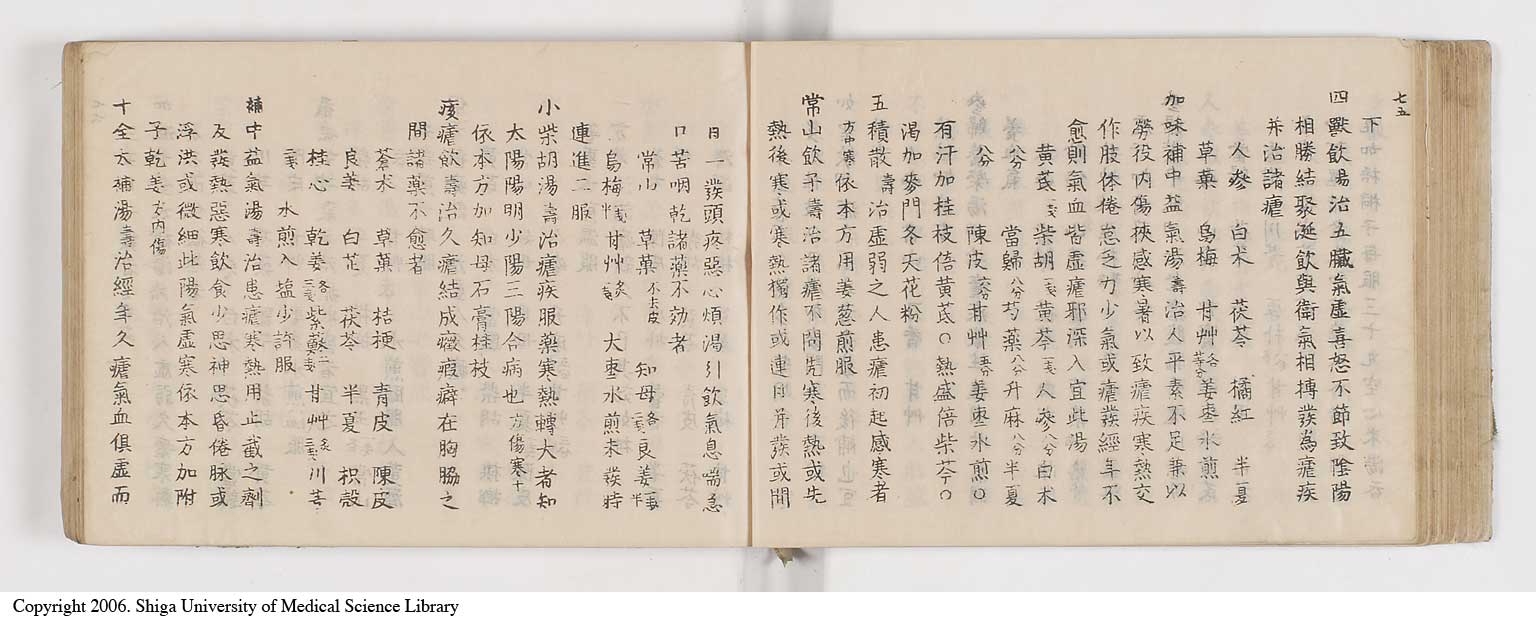 七五
下
四獸飲陽治五臟氣虛喜怒不節致陰陽
相勝結聚涎飲與衛氣相搏發為瘧疾
并治諸瘧
人參 白朮 茯苓 橘紅 半夏
草菓 烏梅 甘艸各等分姜枣水煎
加味補中益氣湯壽治人平素不足兼以
勞役內傷挾感寒暑以致瘧疾寒熱交
作肢体倦怠乏力少氣或瘧發經年不
愈則氣血皆虛瘧邪深入宜此湯
黄芪 柴胡 黄芩 人參八分白朮
八分 當歸八分芍藥八分升麻八分半夏
八分 陳皮六分甘艸五分姜枣水煎〇
有汗加桂枝倍黄芪〇熱盛倍柴芩〇
渴加麥門冬天花粉
五積散壽治虛弱之人患瘧初起感寒者
方中寒依本方用姜葱煎服
常山飲子壽治諸瘧不問先寒後熱或先
熱後寒或寒熱獨作或連日并發或間
日一發頭疼惡心煩渴引飲氣息喘急
口苦咽乾諸藥不効者
常山 草菓不去皮 知母各二戔良姜一戔半
烏梅 甘艸炙 大枣水煎未發時
連進二服
小柴胡湯壽治瘧疾服藥寒熱轉大者知
太陽陽明少陽三陽合病也方傷寒十
依本方加知母石膏桂枝
痎瘧飲壽治久瘧結成癥瘕癖在胸脇之
間諸藥不愈者
蒼朮 草菓 桔梗 青皮 陳皮
良姜 白芷 茯苓 半夏 枳殼
桂心 乾姜各三戔紫蘇 甘艸炙 川芎
二戔 水煎入塩少許服
補中益氣湯壽治患瘧寒熱用止截之劑
及發熱惡寒飲食少思神思昏倦脉或
浮洪或微細此陽氣虛寒依本方加附
子乾姜方內傷
十全大補湯壽治經年久瘧氣血俱虛而
Copyright 2006. Shiga University of Medical Science Library